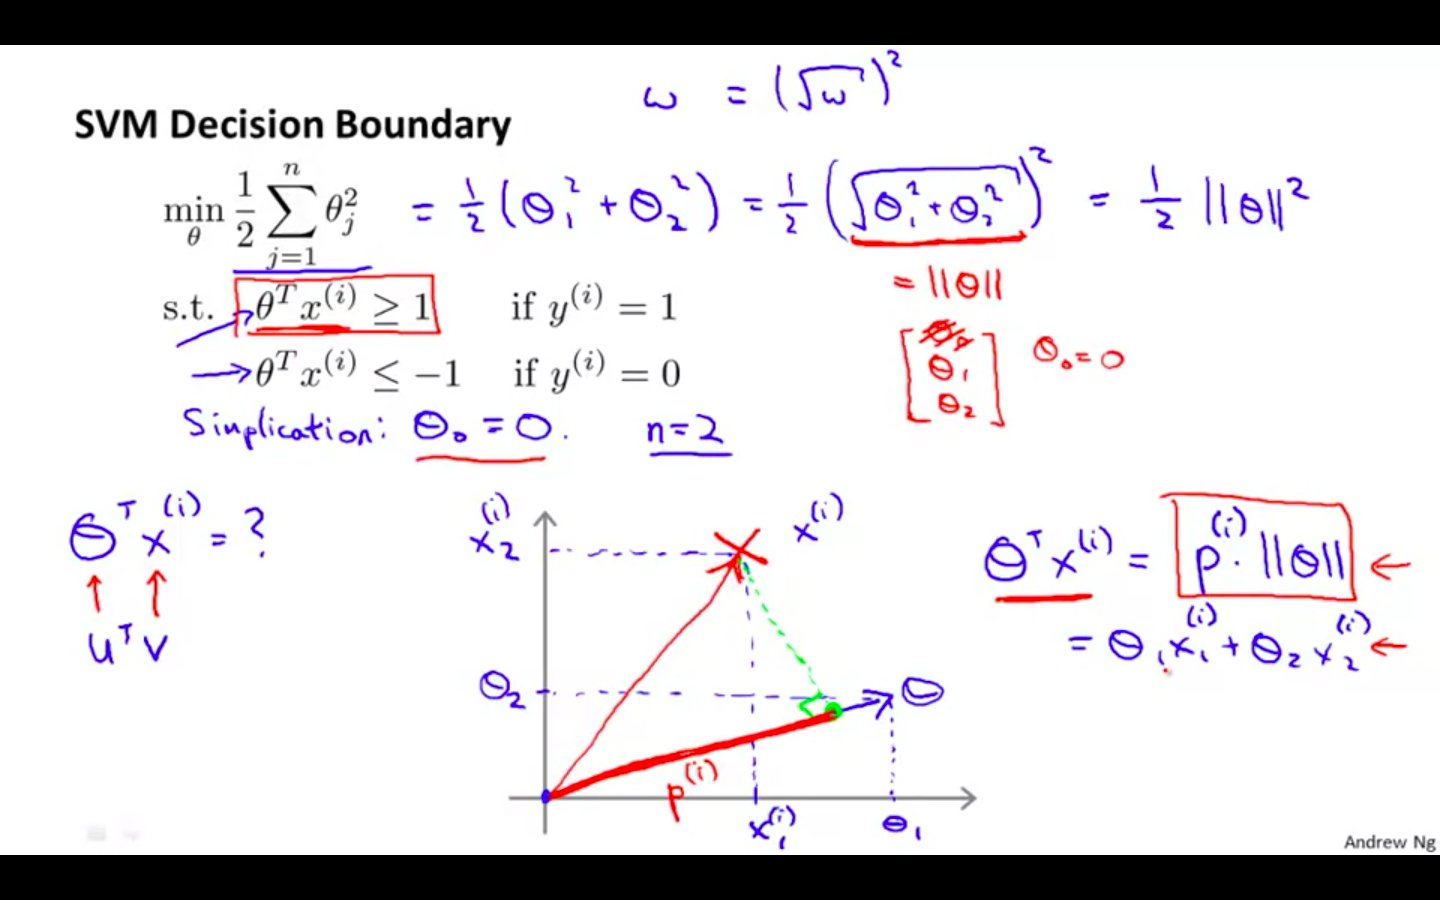 ω = (√ω)²
SVM Decision Boundary
min_θ 1/2 ∑_{j=1}^{n} θ_j² = 1/2 (θ₁² + θ₂²) = 1/2 (√(θ₁² + θ₂²))² = 1/2 ||θ||²
= ||θ||
s.t. θᵀx⁽ⁱ⁾ ≥ 1 if y⁽ⁱ⁾ = 1
[θ₀ θ₁ θ₂] θ₀ = 0
θᵀx⁽ⁱ⁾ ≤ −1 if y⁽ⁱ⁾ = 0
Simplication: θ₀ = 0. n=2
θᵀx⁽ⁱ⁾ = ?
uᵀv
x₂⁽ⁱ⁾
x⁽ⁱ⁾
θ₂
θ
p⁽ⁱ⁾
x₁⁽ⁱ⁾
θ₁
θᵀx⁽ⁱ⁾ = p⁽ⁱ⁾ · ||θ|| ←
= θ₁x₁⁽ⁱ⁾ + θ₂x₂⁽ⁱ⁾ ←
Andrew Ng